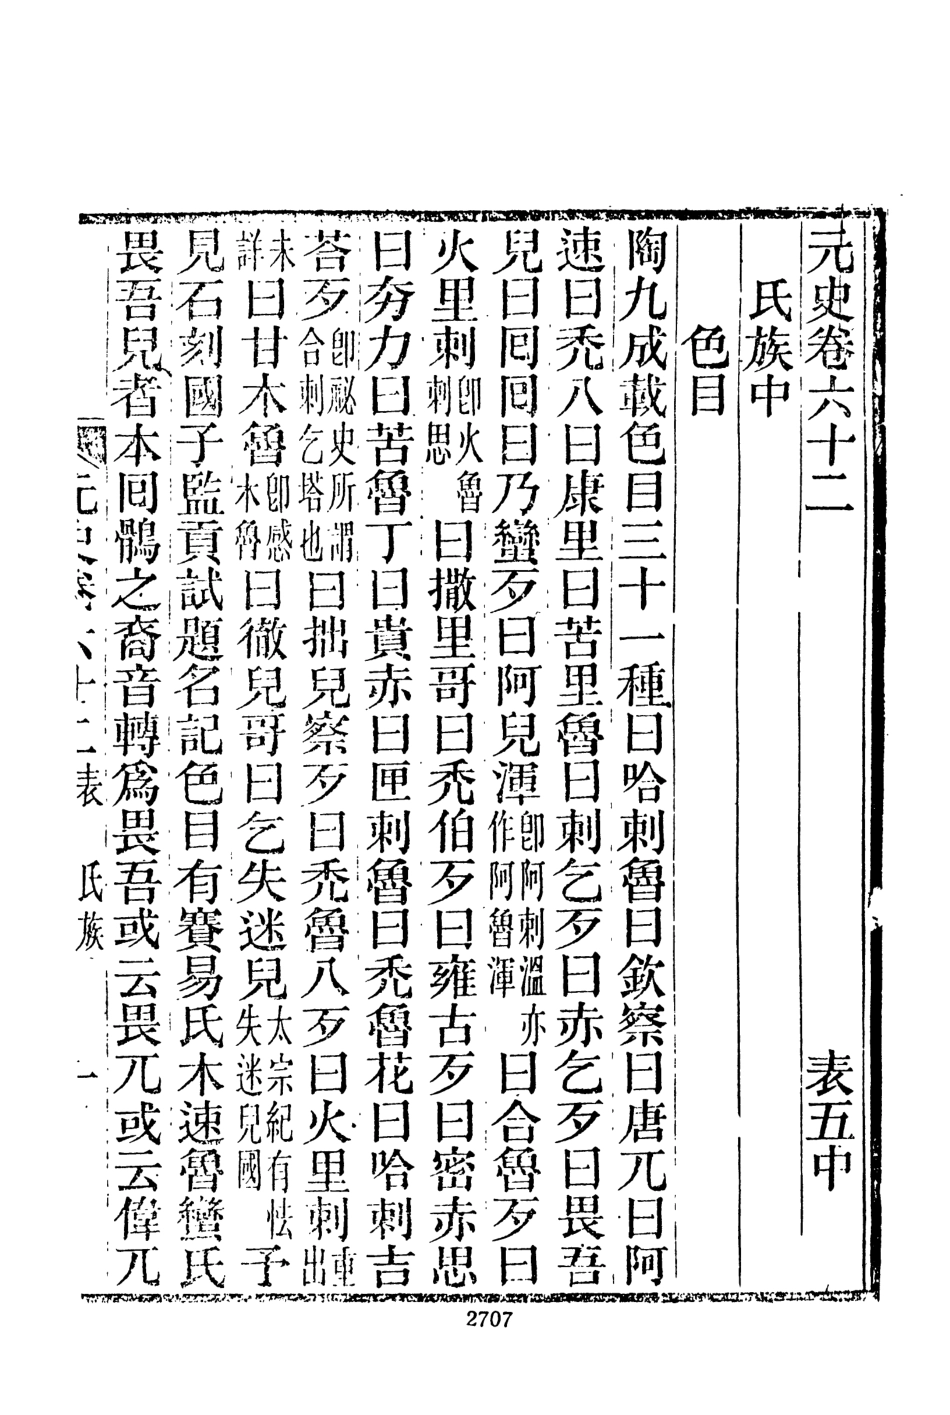 元史卷六十二　表五中
氏族中
色目
陶九成載色目三十一種曰哈剌魯曰欽察曰唐兀曰阿
速曰禿八曰康里曰苦里魯曰剌乞歹曰赤乞歹曰畏吾
兒曰囘囘曰乃蠻歹曰阿兒渾卽阿剌溫亦作阿魯渾曰合魯歹曰
火里剌卽火魯剌思曰撒里哥曰禿伯歹曰雍古歹曰密赤思
曰夯力曰苦魯丁曰貴赤曰匣剌魯曰禿魯花曰哈剌吉
荅歹卽祕史所謂合剌乞塔也曰拙兒察歹曰禿魯八歹曰火里剌重出
未詳曰甘木魯卽感木魯曰徹兒哥曰乞失迷兒太宗紀有怯失迷兒國予
見石刻國子監貢試題名記色目有賽易氏木速魯蠻氏
畏吾兒者本囘鶻之裔音轉爲畏吾或云畏兀或云偉兀
元史卷六十二表　氏族　一
2707